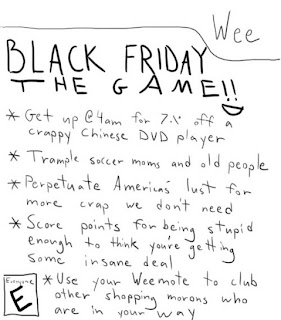 Wee
BLACK FRIDAY
THE GAME!!
* Get up @4am for 7% off a
crappy Chinese DVD player
* Trample soccer moms and old people
* Perpetuate America's lust for
more crap we don't need
* Score points for being stupid
enough to think you're getting
some insane deal
* Use your Weemote to club
other shopping morons who
are in your way
Everyone
E